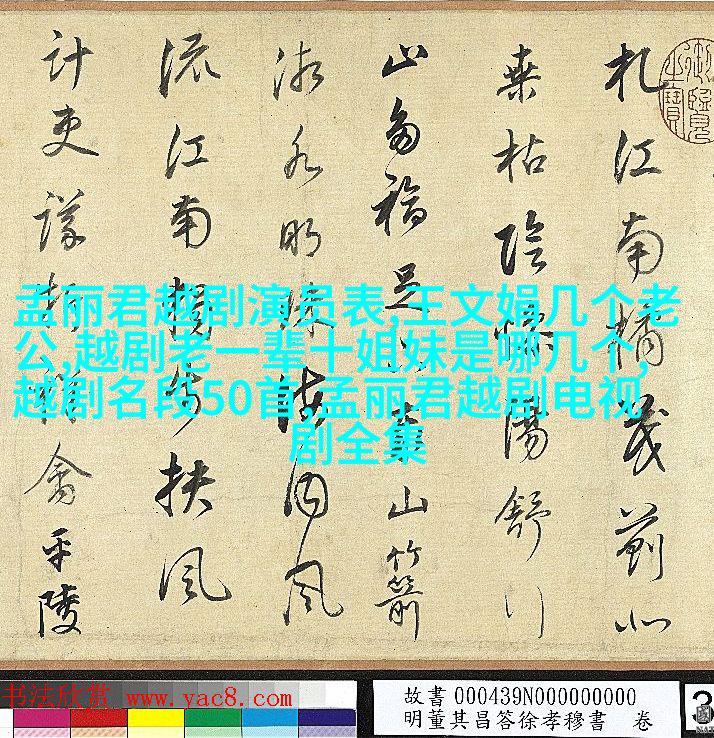 孟丽君越剧演员表,王文娟几个老
公,越剧老一辈十姐妹是哪几个,
越剧名段50首,孟丽君越剧电视
剧全集
札江南橘茂薊北
桑枯陰慘陽舒行
山多福足下泰山竹箭
浙水明珠海内風
流江南獨步扶風
計吏議折祥禽平陵
书法欣赏 www.yac8.com
故書 000439N000000000
明董其昌答徐孝穆書 卷